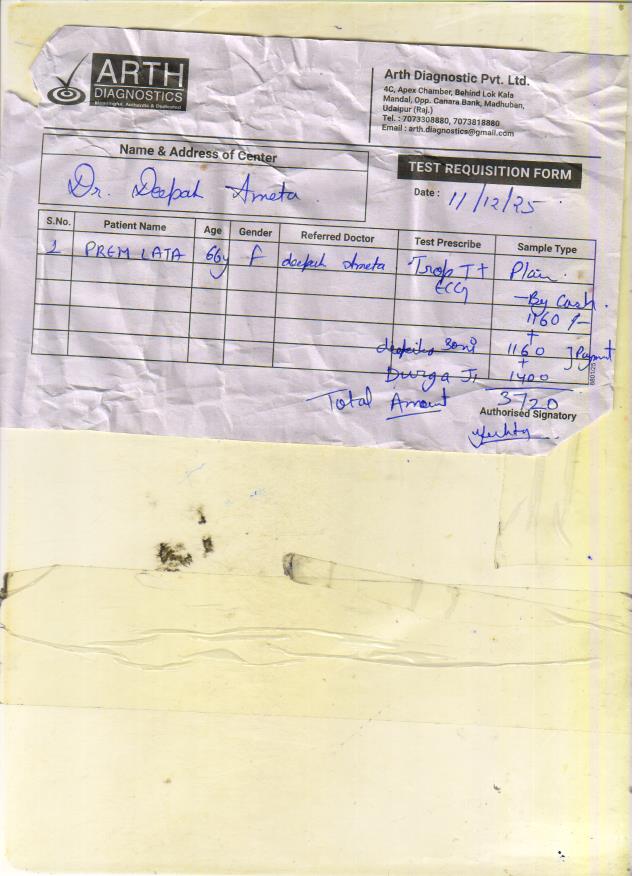 ARTH
DIAGNOSTICS
Meaningful, Authentic & Dedicated
Arth Diagnostic Pvt. Ltd.
4C, Apex Chamber, Behind Lok Kala
Mandal, Opp. Canara Bank, Madhuban,
Udaipur (Raj.)
Tel. : 7073308880, 7073818880
Email : arth.diagnostics@gmail.com
Name & Address of Center
Dr. Deepak Ameta
TEST REQUISITION FORM
Date : 11/12/25
S.No. Patient Name Age Gender Referred Doctor Test Prescribe Sample Type
1 PREM LATA 66y F deepak Ameta Trop T + Plain
ECG - By Cash.
1160 /-
+
soni 1160 ] Payment
+
Durga Ji 1400
Total Amount 3720
Authorised Signatory